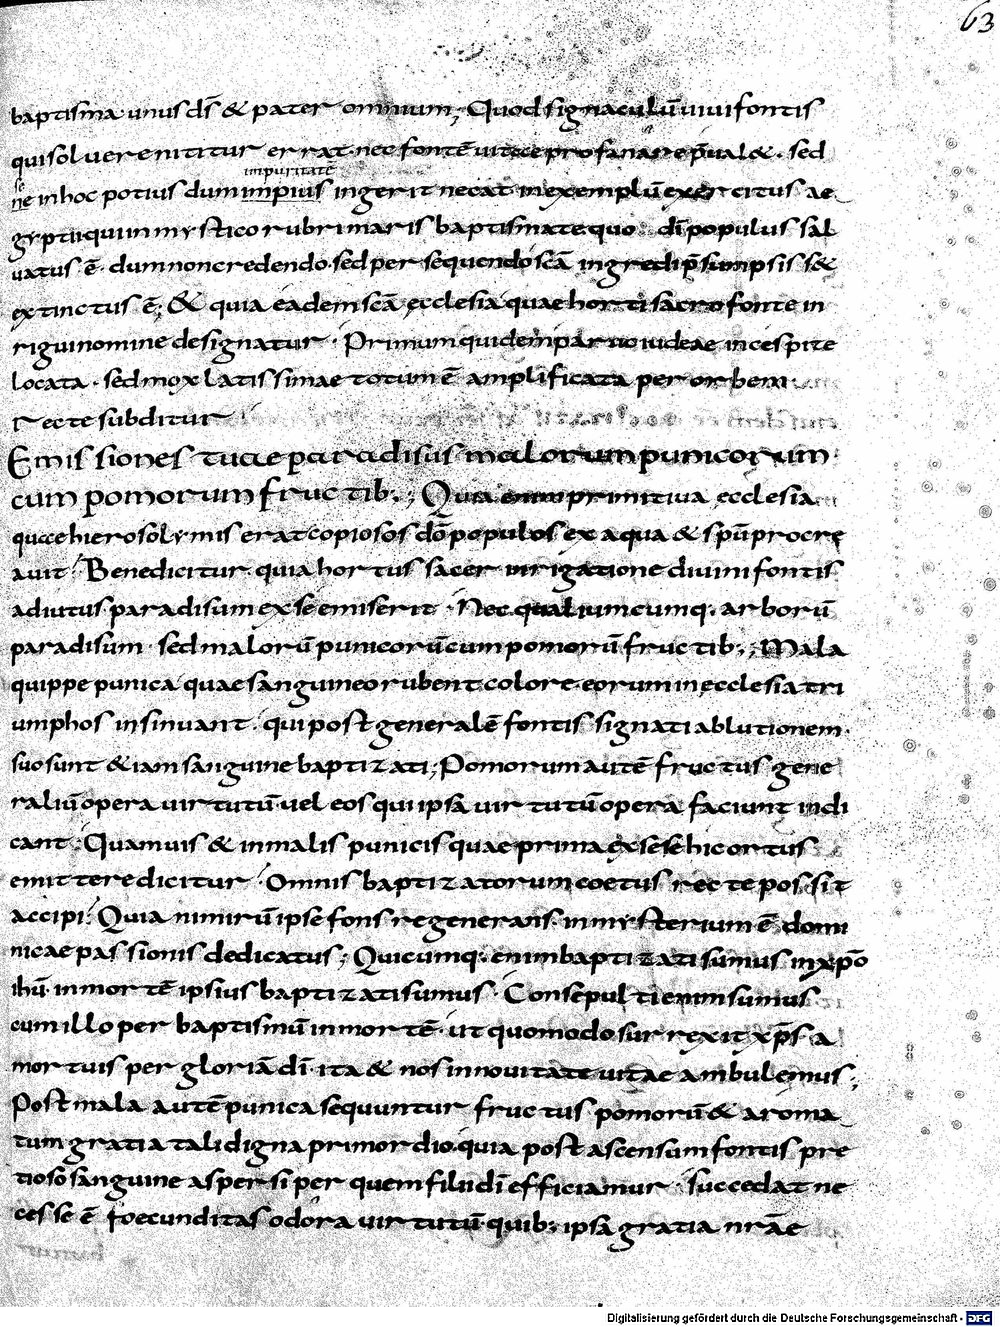 63
baptisma unus ds̄ & pater omnium; Quod signaculū uiui fontis
qui soluere nititur errat. nec fontē uitae profanare p̄ualet. sed
se impuritatē
ne in hoc potius dum impius ingerit necat in exemplū exercitus ae
gyptii qui in mystico rubri maris baptismate quo dī populus sal
uatus ē. dum non credendo sed persequendo scā ingredi p̄sumpsisset
extinctus ē; & quia eadem scā ecclesia quae horti sacro fonte in
rigui nomine designatur. Primum quidem paruo iudeae in cespite
locata. sed mox latissimae totum ē amplificata per orbem
recte subditur
Emissiones tuae paradisus malorum punicorum
cum pomorum fructib:; Quia enim primitiua ecclesia
quae hierosolymis erat copiosos dō populos ex aqua & spū procre
auit. Benedicitur quia hortus sacer inrigatione diuini fontis
adiutus paradisum ex se emiserit. Nec qualiumcumq: arborū
paradisum. sed malorū punicorū cum pomorū fructib:; Mala
quippe punica quae sanguineo rubent colore. eorum in ecclesia tri
umphos insinuant. qui post generalē fontis signati ablutionem.
suo sunt & iam sanguine baptizati; Pomorum autē fructus gene
raliū opera uirtutū. uel eos qui ipsa uirtutū opera faciunt indi
cant. Quamuis & in malis punicis quae prima ex se se hic ortus
emittere dicitur. Omnis baptizatorum coetus recte possit
accipi. Quia nimirū ipse fons regenerans. in mysterium ē domi
nicae passionis dedicatus; Quicumq: enim baptizati sumus in xp̄o
ihū. in mortē ipsius baptizati sumus. Consepulti enim sumus
cum illo per baptismū in mortē. ut quomodo surrexit xp̄s a
mortuis per gloriā dī. ita & nos in nouitate uitae ambulemus;
Post mala autē punica sequuntur fructus pomorū & aroma
tum gratia tali digna primordio. quia post ascensum fontis pre
tioso sanguine aspersi per quem filii dī efficiamur. succedat ne
cesse ē foecunditas odora uirtutū. quib: ipsa gratia nrāe
Digitalisierung gefördert durch die Deutsche Forschungsgemeinschaft - DFG